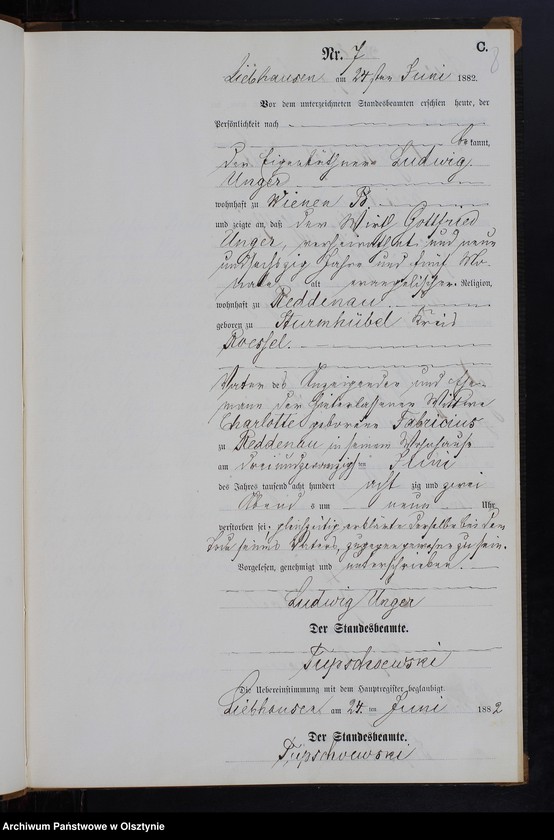 C.
Nr. 7
8
Liebhausen am 24sten Juni 1882.
Vor dem unterzeichneten Standesbeamten erschien heute, der
Persönlichkeit nach
bekannt,
der Eigenkäthner Ludwig
Unger
wohnhaft zu Wienen B.
und zeigte an, daß der Wirth Gottfried
Unger, verheirathet und neun
undsechszig Jahre und fünf Mo-
nate alt evangelischer Religion,
wohnhaft zu Reddenau
geboren zu Sturmhübel Kreis
Roessel.
Vater des Anzeigenden und Ehe-
mann der hinterlassenen Wittwe
Charlotte geborene Fabricius
zu Reddenau in seinem Wohnhause
am dreiundzwanzigsten Juni
des Jahres tausend acht hundert achtzig und zwei
Abends um neun Uhr
verstorben sei; gleichzeitig erklärte derselbe bei dem
Tode seines Vaters, zugegen gewesen zu sein.
Vorgelesen, genehmigt und unterschrieben.
Ludwig Unger
Der Standesbeamte.
Die Uebereinstimmung mit dem Hauptregister beglaubigt.
Liebhausen am 24. ten Juni 1882
Der Standesbeamte.
Archiwum Państwowe w Olsztynie